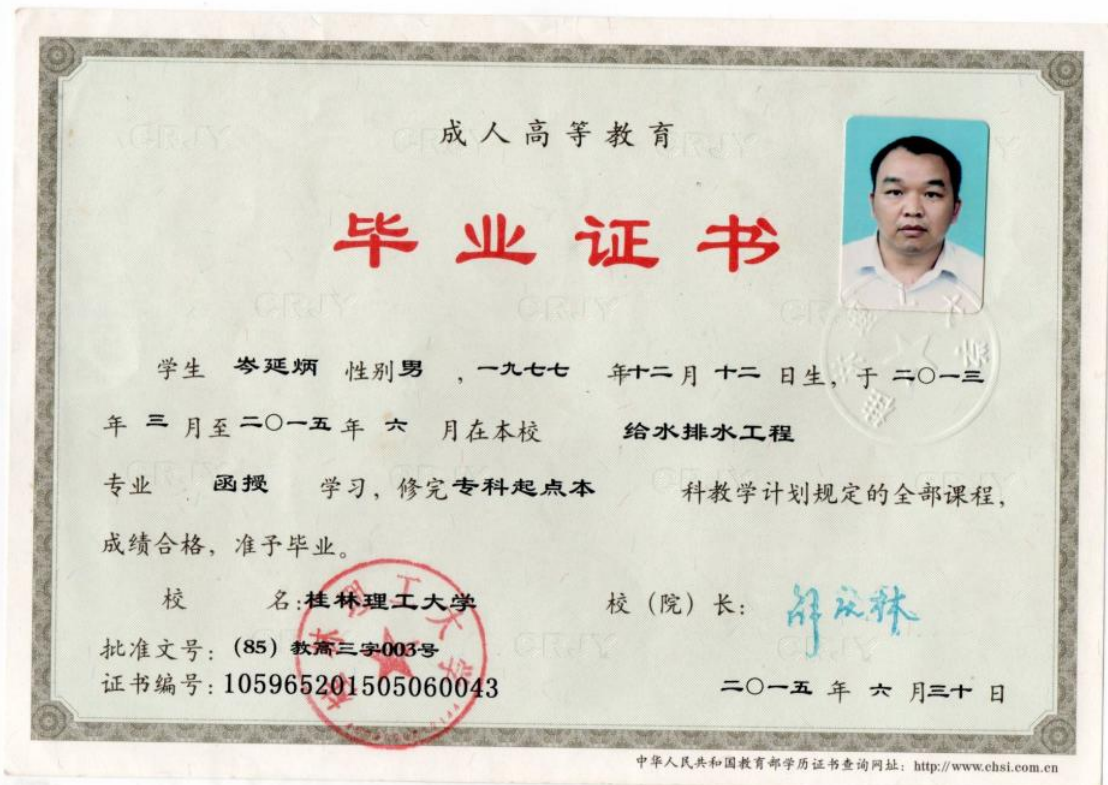 成人高等教育
毕业证书
学生 岑延炳 性别男 ，一九七七 年十二月 十二 日生，于 二〇一三
年 三 月至 二〇一五 年 六 月在本校 给水排水工程
专业 函授 学习，修完专科起点本 科教学计划规定的全部课程，
成绩合格，准予毕业。
校 名：桂林理工大学 校（院）长：
批准文号：（85）教高三字003号
证书编号：105965201505060043
二〇一五 年 六 月三十 日
桂林理工大学
中华人民共和国教育部学历证书查询网址：http://www.chsi.com.cn